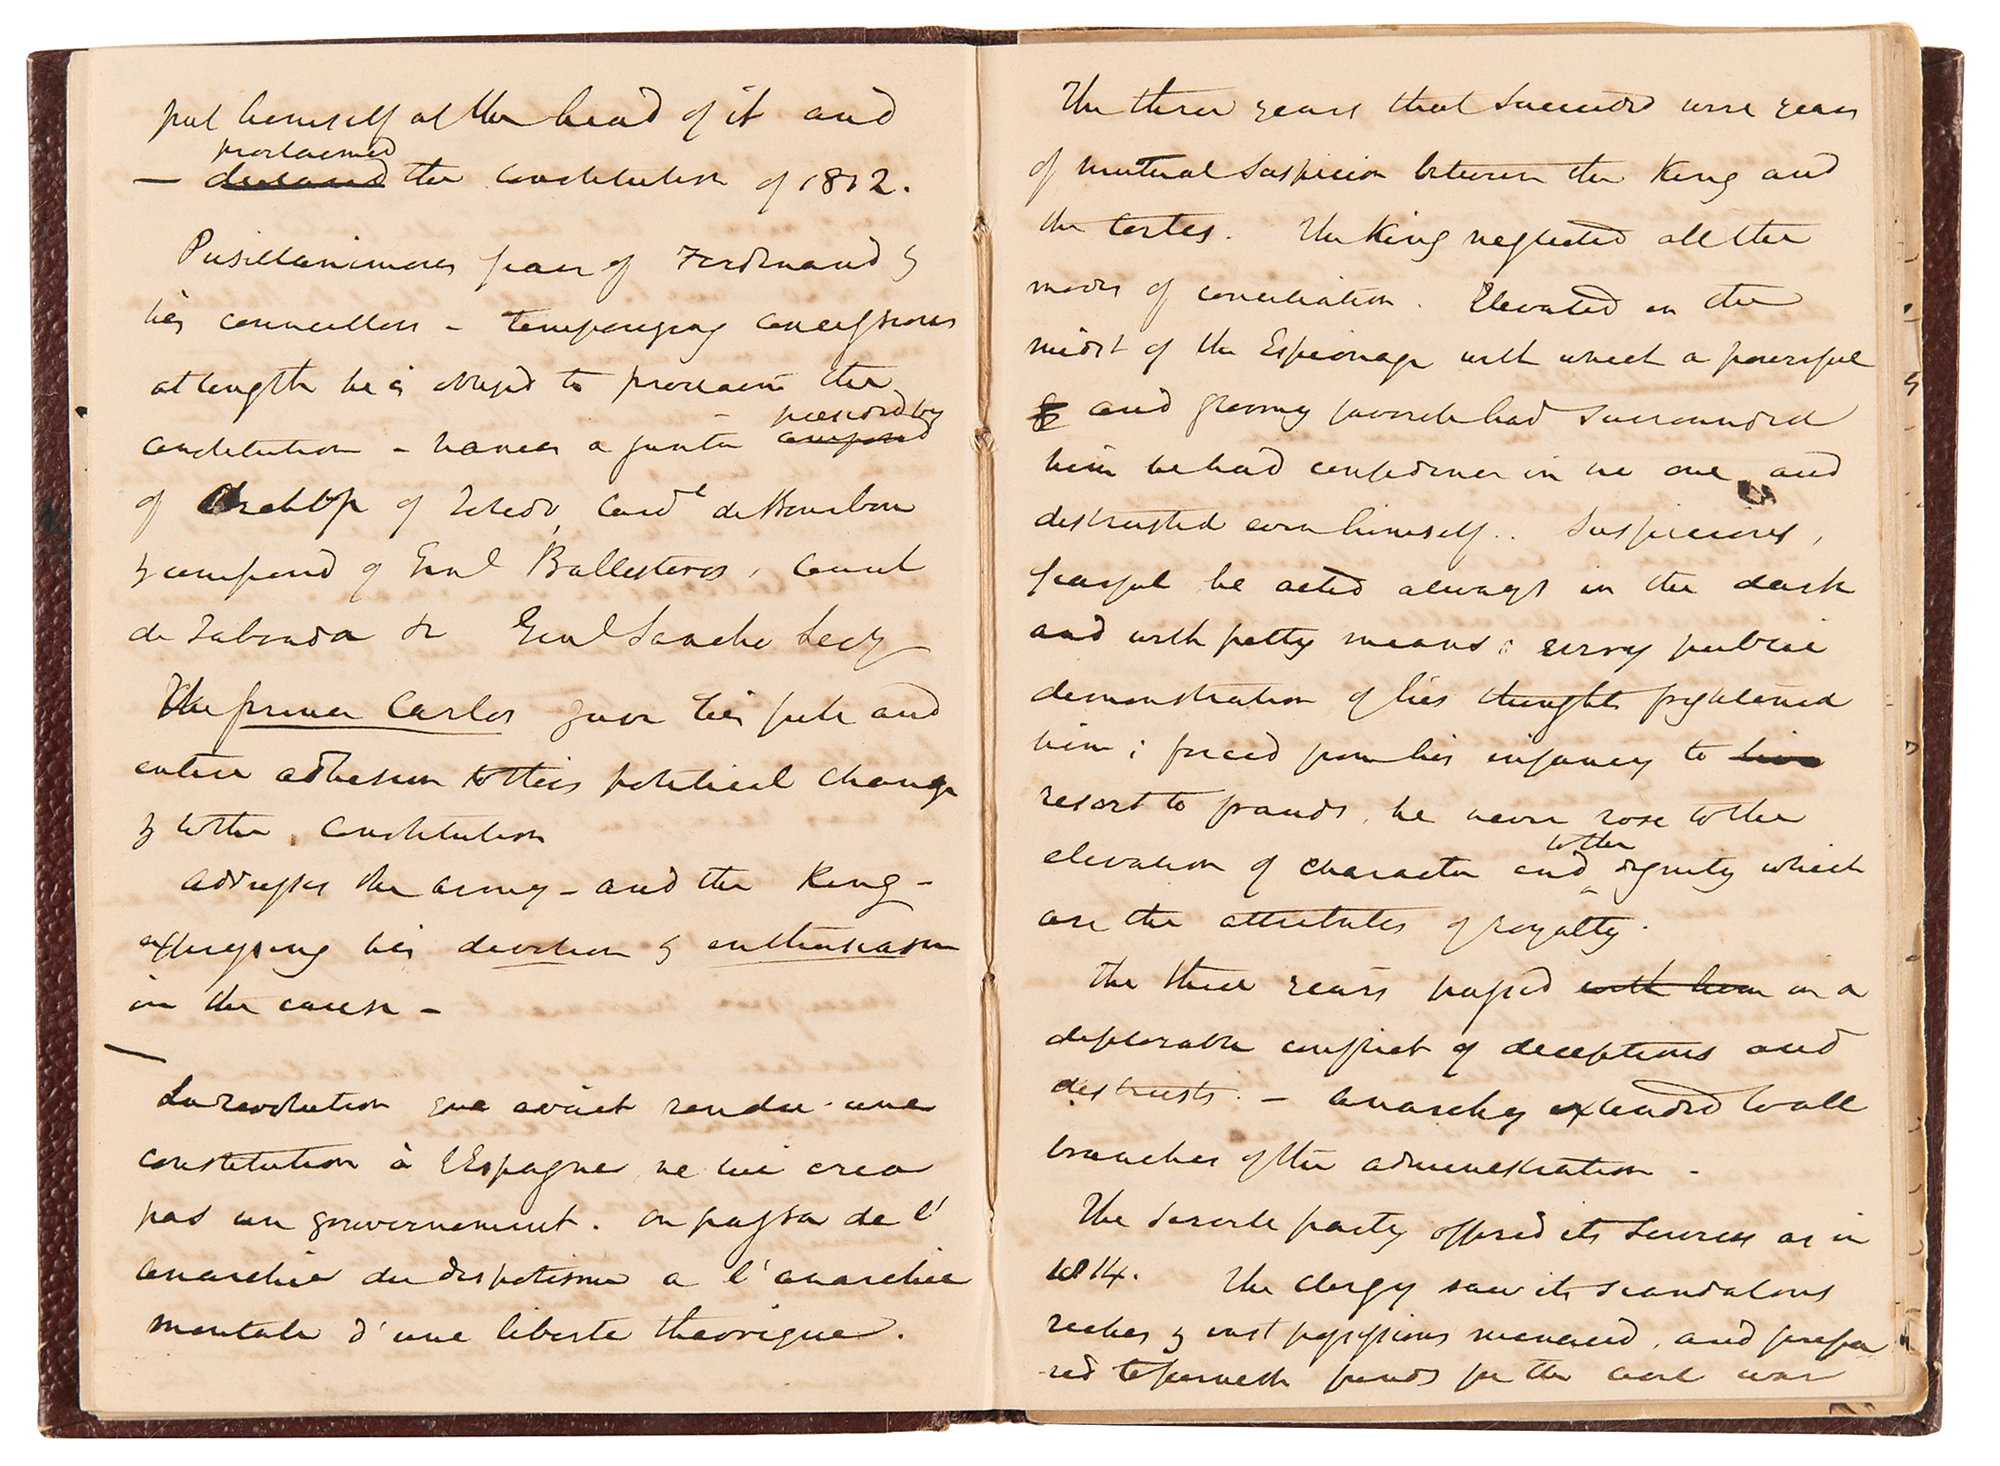 put himself at the head of it and
proclaimed
— declared the constitution of 1812.
Pusillanimous fear of Ferdinand &
his councillors – temporizing concessions
at length he is obliged to proclaim the
presided by
constitution – names a junta composed
of Archbp of Toledo, Cardl de Bourbon
& composed of Genl Ballesteros, Count
de Taboada & Genl Sancho Lecy
The prince Carlos gave his full and
entire adhesion to this political change
& to the constitution
addresses the army – and the King –
expressing his devotion & enthusiasm
in the cause –
La revolution que avait rendu une
constitution à l'Espagne ne lui crea
pas un gouvernement. on passa de l'
anarchie du despotisme a l'anarchie
mentale d'une liberte theorique.
The three years that succeeded were years
of mutual suspicion between the King and
the Cortes. The King neglected all the
modes of conciliation. Elevated in the
midst of the Espionage with which a powerful
and gloomy favorite had surrounded
him he had confidence in no one and
distrusted even himself. Suspicious,
fearful he acted always in the dark
and with petty means; every public
demonstration of his thoughts frightened
him; forced from his infancy to live
resort to frauds, he never rose to the
to the
elevation of character and dignity which
are the attributes of royalty.
The three years passed with him in a
deplorable conflict of deceptions and
distrusts. – Anarchy extended to all
branches of the administration –
The servile party offered its services as in
1814. The clergy saw its scandalous
riches & vast possessions menaced, and prepa
red to furnish funds for the civil war